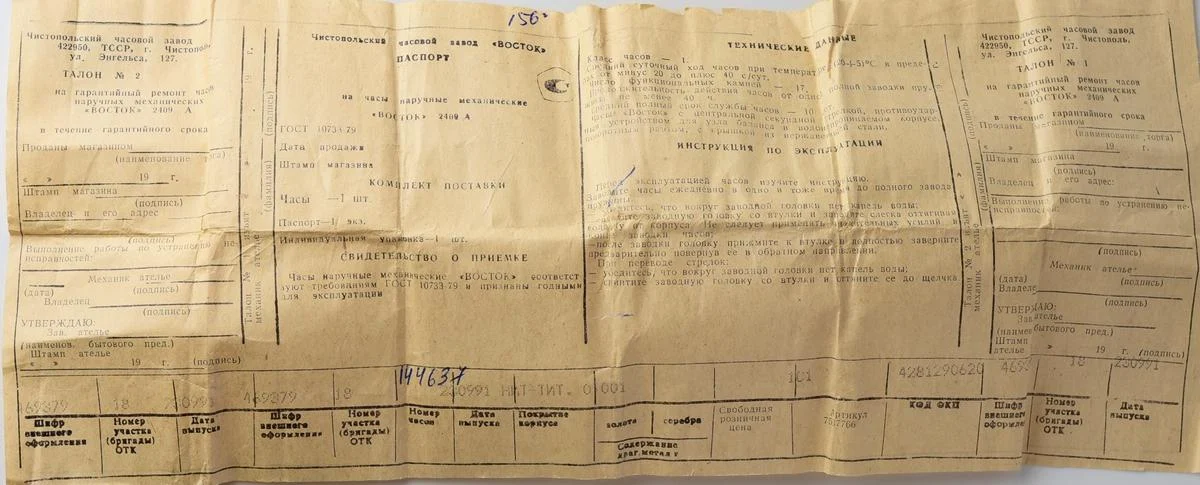 156
Чистопольский часовой завод
422950, ТССР, г. Чистополь,
ул. Энгельса, 127.
ТАЛОН № 2
на гарантийный ремонт часов
наручных механических
«ВОСТОК» 2409 А
в течение гарантийного срока
Проданы магазином
(наименование торга)
« » 19 г.
Штамп магазина
(подпись)
Владелец и его адрес
(подпись)
Выполнение работы по устранению не-
исправностей:
Механик ателье
(дата) (подпись)
Владелец
(подпись)
УТВЕРЖДАЮ:
Зав. ателье
(наименов. бытового пред.)
Штамп ателье
« » 19 г. (подпись)
Талон № изъят « » 19 г.
механик ателье (фамилия) (подпись)
Чистопольский часовой завод «ВОСТОК»
ПАСПОРТ
на часы наручные механические
«ВОСТОК» 2409 А
ГОСТ 10733-79
Дата продажи
Штамп магазина
КОМПЛЕКТ ПОСТАВКИ
Часы —1 шт.
Паспорт—1 экз.
Индивидуальная упаковка—1 шт.
СВИДЕТЕЛЬСТВО О ПРИЕМКЕ
Часы наручные механические «ВОСТОК» соответст
вуют требованиям ГОСТ 10733-79 и признаны годными
для эксплуатации
ТЕХНИЧЕСКИЕ ДАННЫЕ
Класс часов — 1.
Средний суточный ход часов при температуре (20+5)°С в преде-
лах от минус 20 до плюс 40 с/сут.
Число функциональных камней — 17.
действия часов от одной полной заводки пру-
менее 40 ч.
полный срок службы часов — 10
Часы «Восток» с центральной секундной стрелкой, противоудар-
ным устройством для узла баланса в водонепроницаемом корпусе,
с крышкой из нержавеющей стали.
ИНСТРУКЦИЯ ПО ЭКСПЛУАТАЦИИ
Перед эксплуатацией часов изучите инструкцию.
Заводите часы ежедневно в одно и тоже время до полного завода
пружины
что вокруг заводной головки нет капель воды;
заводную головку со втулки и заведите слегка оттягивая
головку от корпуса. Не следует применять усилий в
конце заводки часов;
—после заводки головку прижмите к втулке и полностью заверните
предварительно повернув ее в обратном направлении.
При переводе стрелок:
— убедитесь, что вокруг заводной головки нет капель воды;
— свинтите заводную головку со втулки и оттяните ее до щелчка.
Талон № 2 изъят «
механик ателье (фамилия) (подпись)
Чистопольский часовой завод
422950, ТССР, г. Чистополь,
ул. Энгельса, 127.
ТАЛОН № 1
на гарантийный ремонт часов
наручных механических
«ВОСТОК» 2409 А
в течение гарантийного срока
Проданы магазином
(наименование торга)
« » 19 г.
Штамп магазина
(подпись)
Владелец и его адрес:
Выполнение работы по устранению не-
исправностей:
(подпись)
Механик ателье
(дата) (подпись)
Владеле
(подпись)
УТВЕРЖДАЮ:
ателье
(наимен бытового пред.)
Штамп
ателье « » 19 г. (подпись)
469379 18 250991 469379 18 144637 250991 НИТ-ТИТ. 01001 101 4281290620 4693 18 250991
Шифр внешнего оформления
Номер участка (бригады) ОТК
Дата выпуска
Шифр внешнего оформления
Номер участка (бригады) ОТК
Номер часов
Дата выпуска
Покрытие корпуса
золота
серебра
Содержание драг.метал г
Свободная розничная цена
Артикул
КОД ОКП
Шифр внешнего оформлен
Номер участка (бригады) ОТК
Дата выпуска